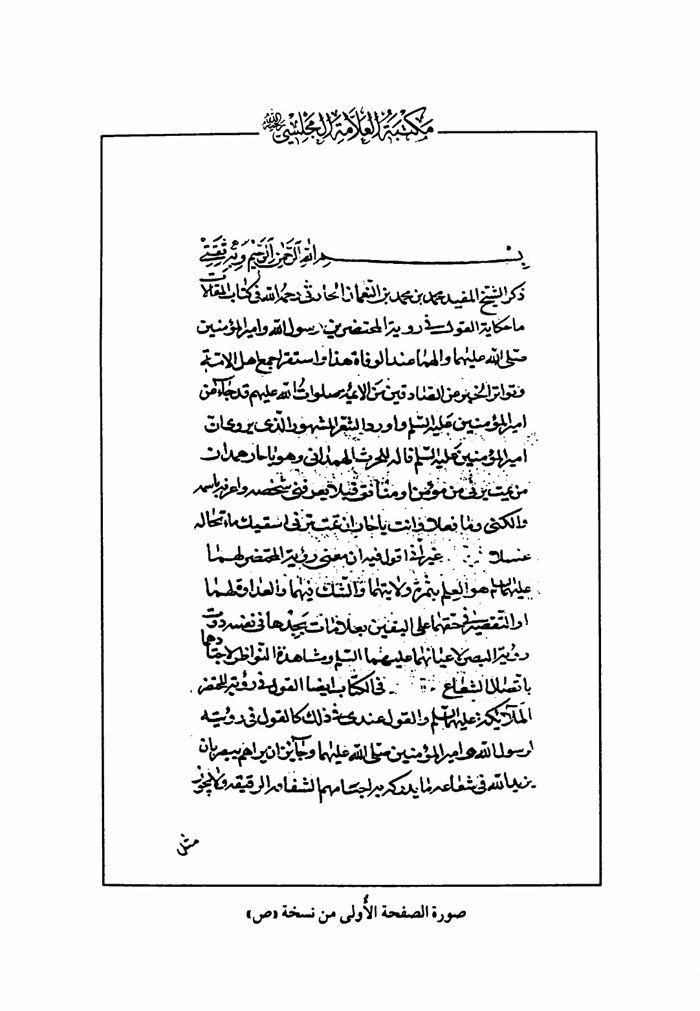 مكتبة العلامة المجلسي
بسم الله الرحمن الرحيم وبه ثقتي
ذكر الشيخ المفيد محمد بن محمد بن النعمان الحارثي رحمه الله في كتاب المقالات
ما حكاية القول في روية المحتضرين رسول الله وامير المؤمنين
صلى الله عليهما والهما عند الوفاة هذا واستقر اجمع اهل الامة
وتواتر الخبر عن الصادقين من الائمة صلوات الله عليهم قد جاء عن
امير المؤمنين عليه السلم واورد الشعر المشهود الذي يروى عن
امير المؤمنين عليه السلم قاله للحرث الهمداني وهو يا حار همدان
من يمت يرني من مؤمن او منافق قبلا يعرفني شخصه واعرفه باسمه
والكنى وما فعلا وانت يا حار ان تمت ترني اسقيك ماء تخاله
عسلا غير اني اقول فيه ان معنى روية المحتضر لهما
عليهما السلم هو العلم بثمرة ولايتهما والشك فيهما والعداوة لهما
او التقصير في حقهما على اليقين بعلامات يجدها في نفسه دون
روية البصر لاعيانهما عليهما السلم ومشاهدة النواظر لاجسادهما
باتصال الشعاع في الكتاب ايضا القول في روية المحتضر
الملائكة عليهم السلم والقول عندي في ذلك كالقول في رويته
لرسول الله وامير المؤمنين صلى الله عليهما وجايز ان يراهم ببصره بان
يزيد الله في شعاعه ما يدرك به اجسامهم الشفافة الرقيقة ولا يجوز
مثل
صورة الصفحة الأولى من نسخة «ص»